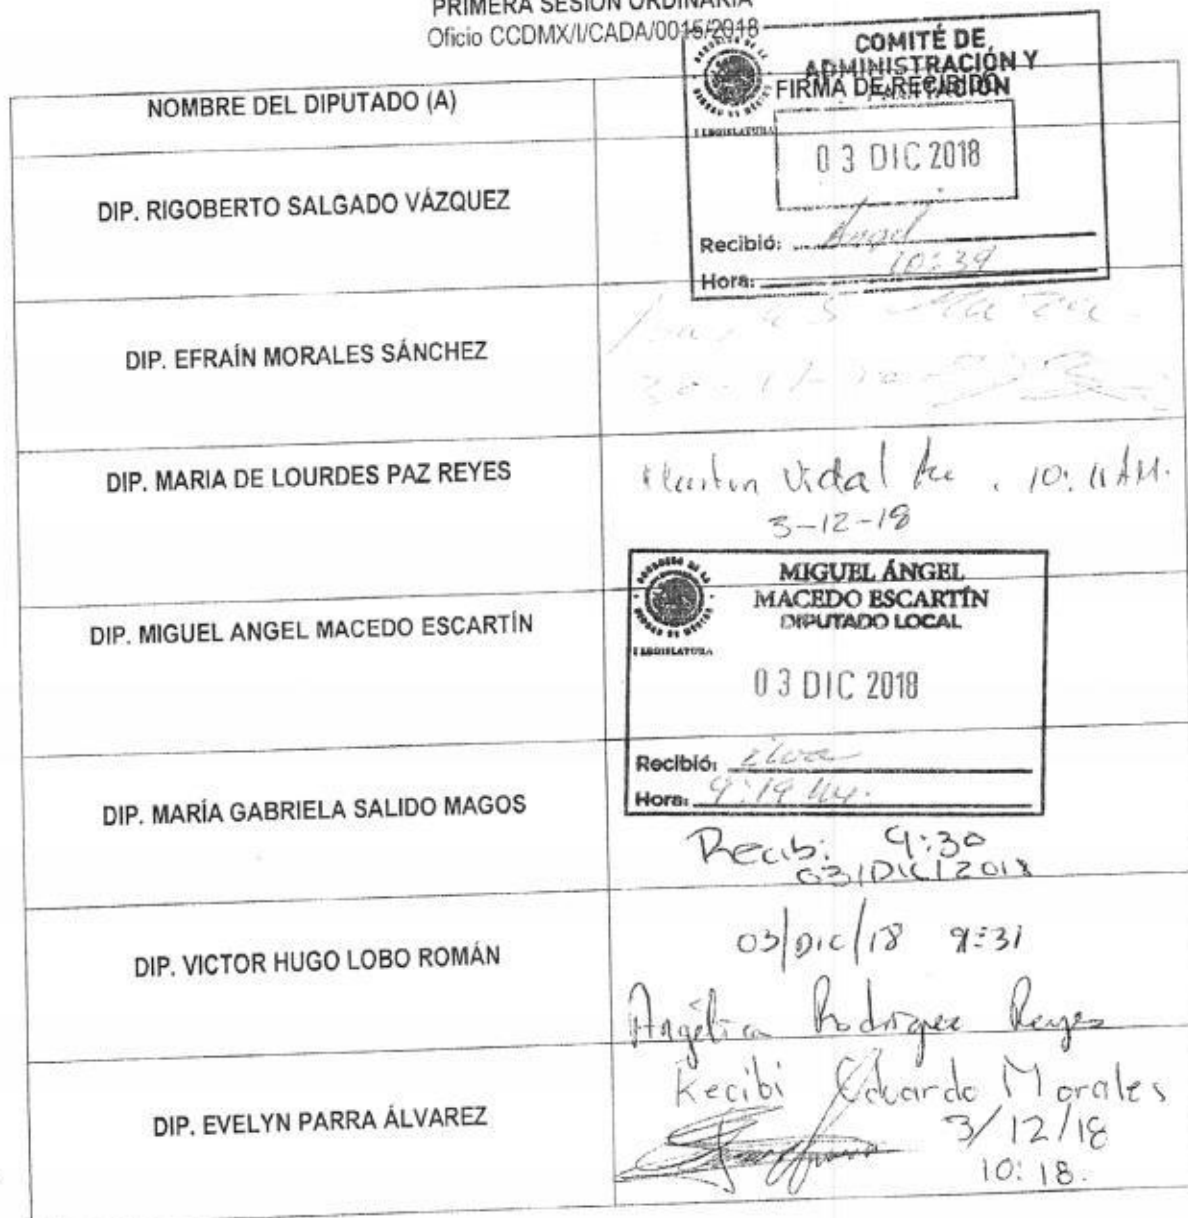 PRIMERA SESIÓN ORDINARIA
Oficio CCDMX/I/CADA/0015/2018
NOMBRE DEL DIPUTADO (A)
FIRMA DE RECIBIDO
COMITÉ DE
ADMINISTRACIÓN Y
CAPACITACIÓN
I LEGISLATURA
03 DIC 2018
Recibió: Angel
Hora: 10:39
DIP. RIGOBERTO SALGADO VÁZQUEZ
DIP. EFRAÍN MORALES SÁNCHEZ
DIP. MARIA DE LOURDES PAZ REYES
Vidal 10:11 AM.
3-12-18
DIP. MIGUEL ANGEL MACEDO ESCARTÍN
MIGUEL ÁNGEL
MACEDO ESCARTÍN
DIPUTADO LOCAL
I LEGISLATURA
03 DIC 2018
Recibió:
Hora: 9:19
DIP. MARÍA GABRIELA SALIDO MAGOS
Recibi: 9:30
03/DIC/2018
DIP. VICTOR HUGO LOBO ROMÁN
03/DIC/18 9:31
Angélica Rodriguez Reyes
DIP. EVELYN PARRA ÁLVAREZ
Recibi Eduardo Morales
3/12/18
10:18.